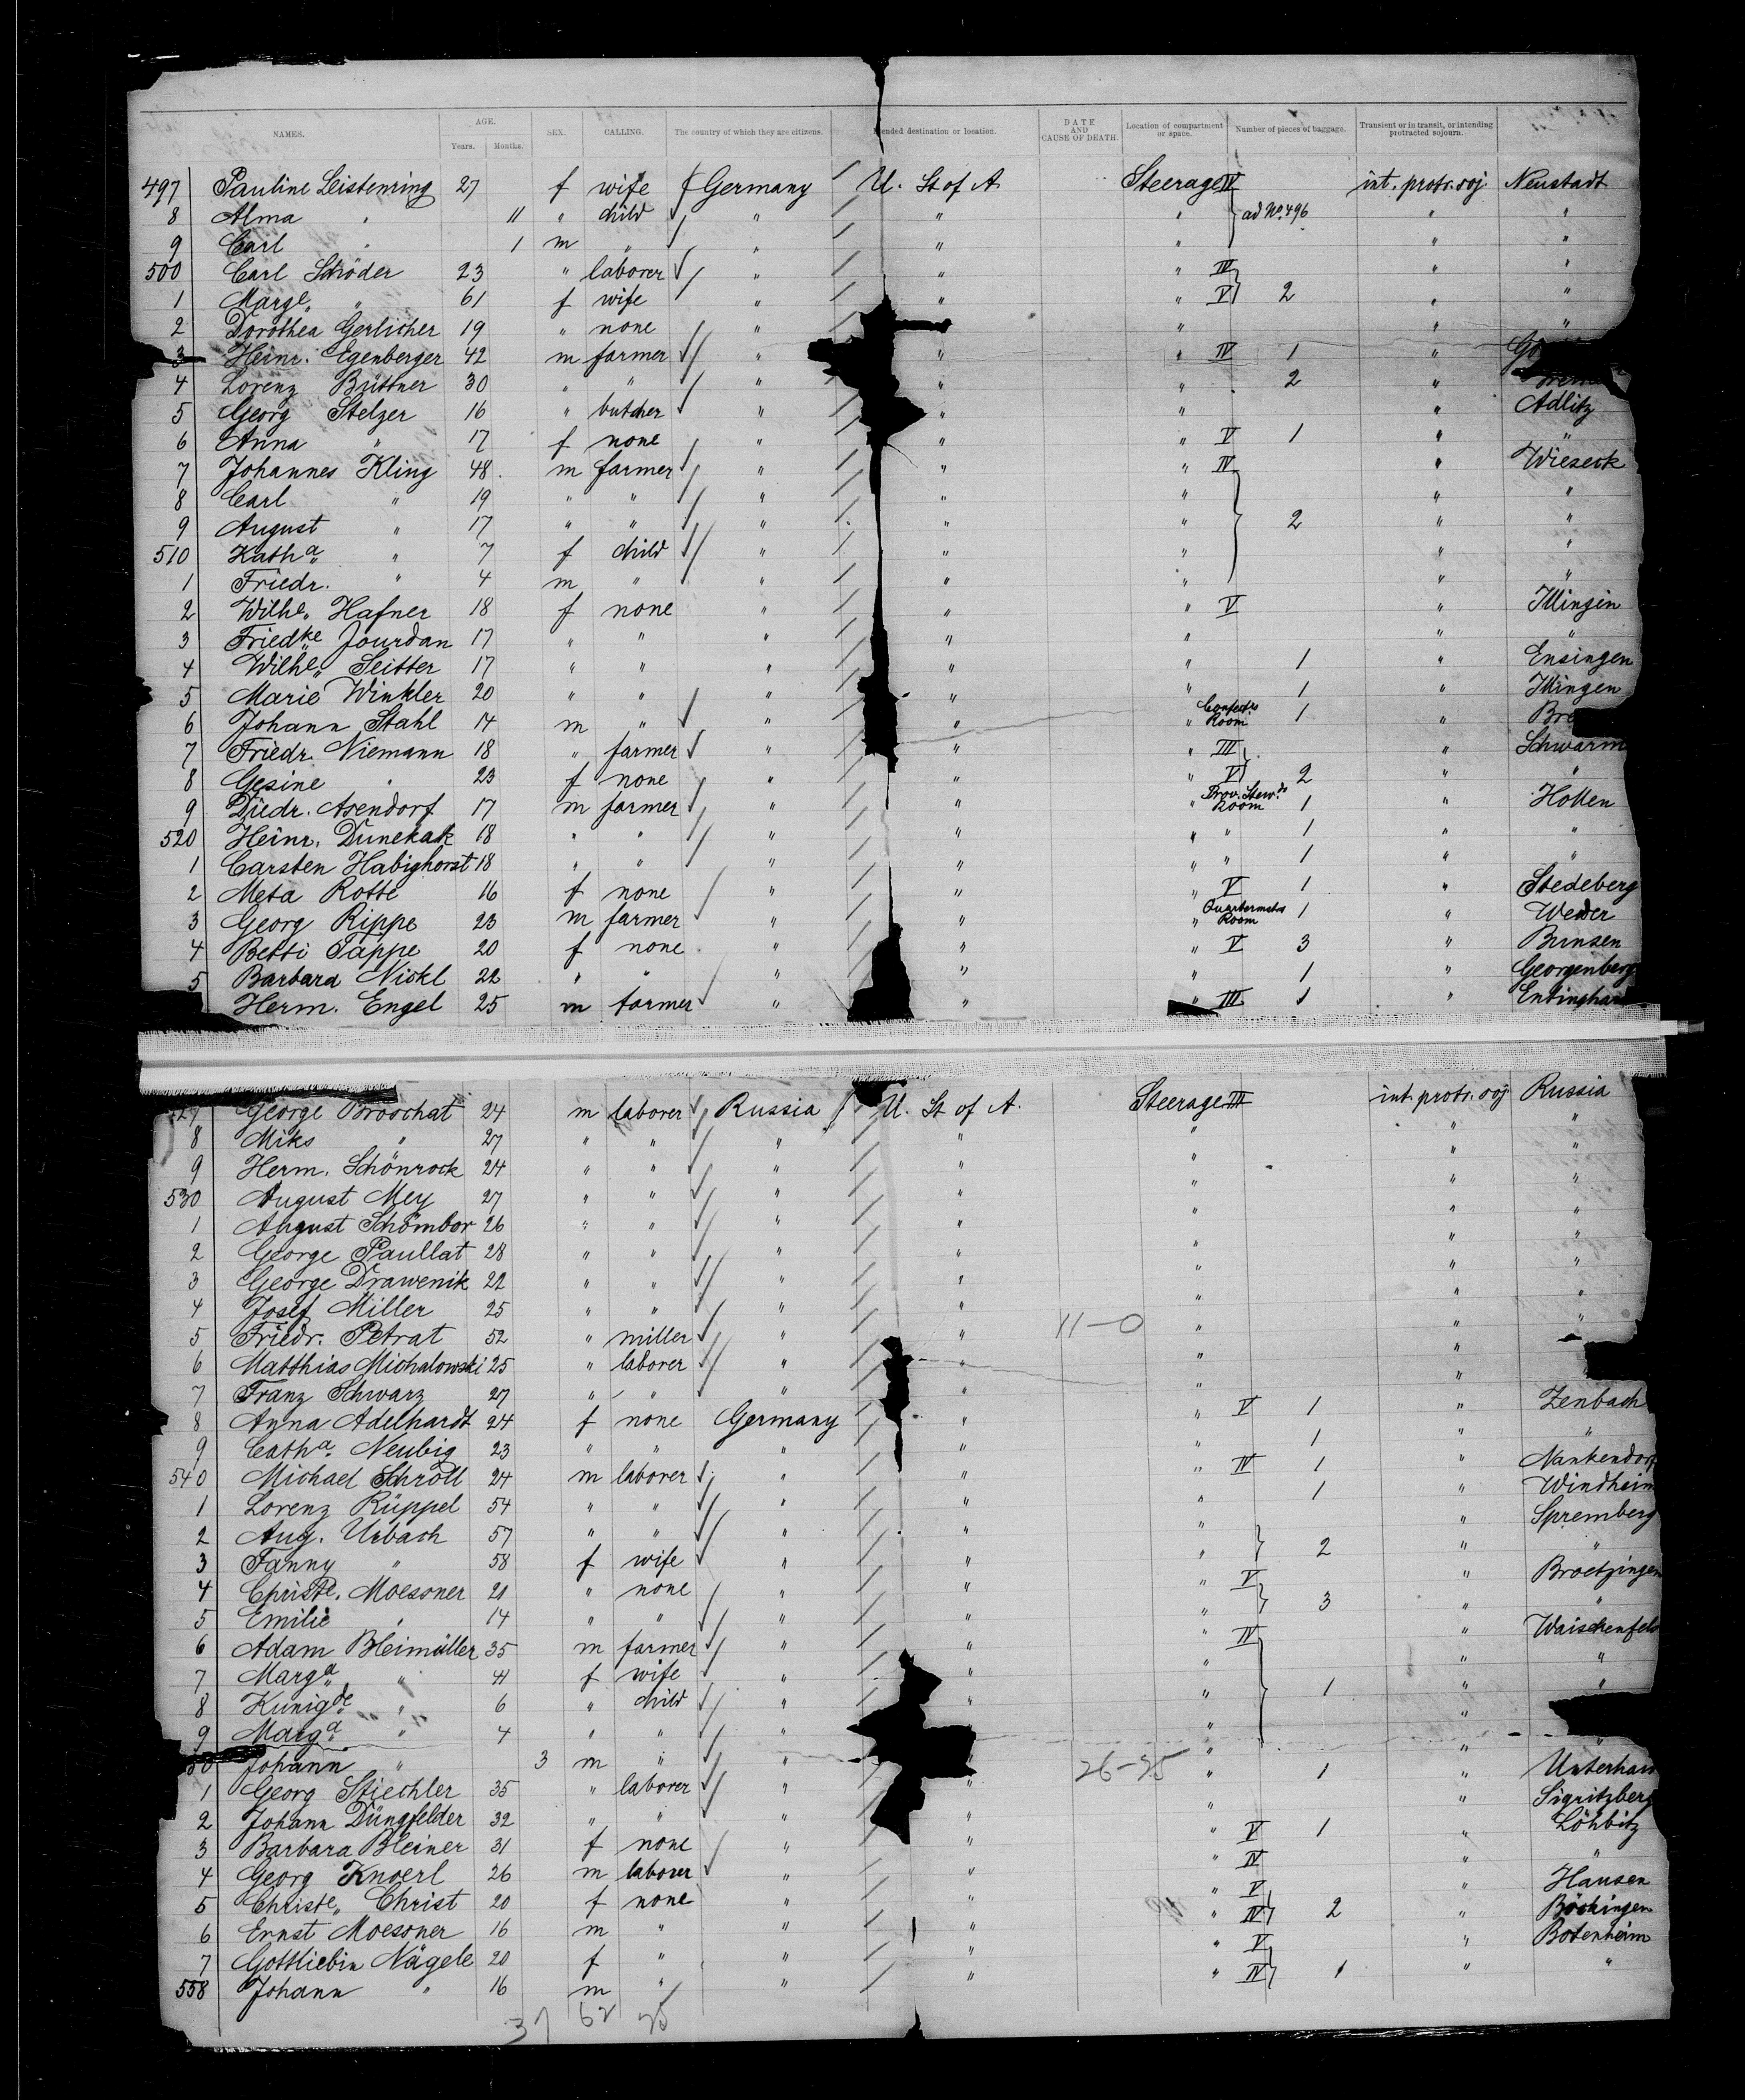 NAMES. AGE. Years. Months. SEX. CALLING. The country of which they are citizens. ended destination or location. DATE AND CAUSE OF DEATH. Location of compartment or space. Number of pieces of baggage. Transient or in transit, or intending protracted sojourn.
497 Pauline Leistenring 27 f wife Germany U. St of A. Steerage IV int. protr. soj Neustadt
8 Alma " 11 " child " " " ad No. 496 " "
9 Carl " 1 m " " " " " "
500 Carl Schöder 23 " laborer " " " IV " "
1 Marge " 61 f wife " " " V 2 " "
2 Dorothea Gerlicher 19 " none " " " " "
3 Heinr. Egenberger 42 m farmer " " " IV 1 "
4 Lorenz Büttner 30 " " " " " 2 "
5 Georg Stelzer 16 " butcher " " " " Adlitz
6 Anna " 17 f none " " " V 1 " "
7 Johannes Kling 48 m farmer " " " IV " Wieseck
8 Carl " 19 " " " " " " "
9 August " 17 " " " " " 2 " "
510 Katha " 7 f child " " " " "
1 Friedr. " 4 m " " " " " "
2 Wilhe Hafner 18 f none " " " V " Illingen
3 Friedke Jourdan 17 " " " " " " "
4 Wilhe Seitter 17 " " " " " 1 " Ensingen
5 Marie Winkler 20 " " " " " 1 " Illingen
6 Johann Stahl 14 m " " " " Room 1 " Bre
7 Friedr. Niemann 18 " farmer " " " III " Schwarm
8 Gesine " 23 f none " " " V 2 " "
9 Diedr. Asendorf 17 m farmer " " " Prov. Stew.ds Room 1 " Hollen
520 Heinr. Dunekak 18 " " " " " " 1 " "
1 Carsten Habighorst 18 " " " " " " 1 " "
2 Meta Rotte 16 f none " " " V 1 " Stedeberg
3 Georg Rippe 23 m farmer " " " Room 1 " Weder
4 Betti Tappe 20 f none " " " V 3 " Brinsen
5 Barbara Nickl 22 " " " " " 1 " Georgenberg
Herm. Engel 25 m farmer " " " III 1 "
27 George Broschat 24 m laborer Russia U. St of A. Steerage III int. protr. soj Russia
8 Miks " 27 " " " " " " "
9 Herm. Schönrock 24 " " " " " " "
530 August Mey 27 " " " " " " "
1 August Schömbor 26 " " " " " " "
2 George Paullat 28 " " " " " " "
3 George Drawenik 22 " " " " " " "
4 Josef Miller 25 " " " " " " "
5 Friedr. Petrat 52 " miller " " 11-0 " " "
6 Matthias Michalowski 25 " laborer " " " "
7 Franz Schwarz 27 " " " " " "
8 Anna Adelhardt 24 f none Germany " " V 1 " Zenbach
9 Catha Neubig 23 " " " " " 1 " "
540 Michael Schroll 24 m laborer " " " IV 1 " Nankendorf
1 Lorenz Rüppel 54 " " " " " 1 " Windheim
2 Aug. Urbach 57 " " " " " " Spremberg
3 Fanny " 58 f wife " " " 2 " "
4 Christe. Moessner 21 " none " " " V " Broetzingen
5 Emilie " 14 " " " " " 3 " "
6 Adam Bleimüller 35 m farmer " " " IV " Waischenfeld
7 Marga " 41 f wife " " " " "
8 Kunigde " 6 " child " " " 1 " "
9 Marga " 4 " " " " "
50 Johann " 3 m " " " " "
1 Georg Stiechler 35 " laborer " " 26-25 " 1 "
2 Johann Düngfelder 32 " " " " " " Sigritzberg
3 Barbara Bleiner 31 f none " " " V 1 " Löhlitz
4 Georg Knoerl 26 m laborer " " " IV " "
5 Christe Christ 20 f none " " " V " Hausen
6 Ernst Moessner 16 m " " " " IV 2 " Böckingen
7 Gottliebin Nägele 20 f " " " " V " Botenheim
558 Johann " 16 m " " " " IV 1 " "
37 62